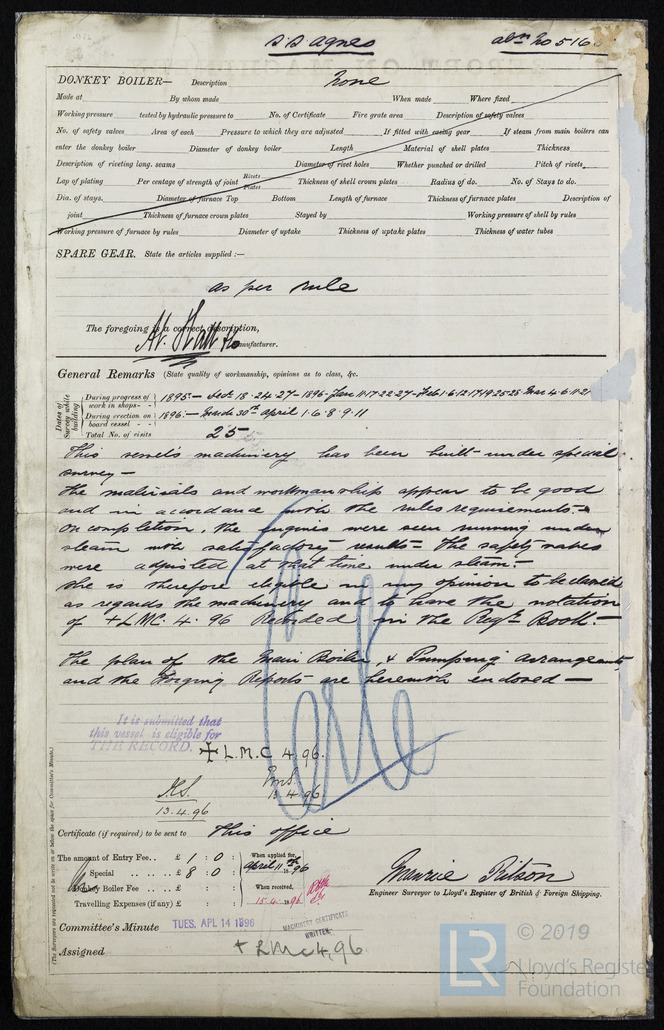 S.S Agnes
DONKEY BOILER— Description None
Made at By whom made When made Where fixed
Working pressure tested by hydraulic pressure to No. of Certificate Fire grate area Description of safety valves
No. of safety valves Area of each Pressure to which they are adjusted If fitted with easing gear If steam from main boilers can
enter the donkey boiler Diameter of donkey boiler Length Material of shell plates Thickness
Description of riveting long. seams Diameter of rivet holes Whether punched or drilled Pitch of rivets
Lap of plating Per centage of strength of joint Rivets Plates Thickness of shell crown plates Radius of do. No. of Stays to do.
Dia. of stays. Diameter of furnace Top Bottom Length of furnace Thickness of furnace plates Description of
joint Thickness of furnace crown plates Stayed by Working pressure of shell by rules
Working pressure of furnace by rules Diameter of uptake Thickness of uptake plates Thickness of water tubes
SPARE GEAR. State the articles supplied :—
as per rule
The foregoing is a correct description,
Manufacturer.
General Remarks (State quality of workmanship, opinions as to class, &c.
Dates of Survey while building
During progress of work in shops - - 1895:— 18.24.27–1896–Jan 11.17.22.27–Feb 1.6.12.17.19.25.28 Mar 4.6.11.21
During erection on board vessel - - 1896:— March 30th April 1.6.8.9.11
Total No. of visits 25
This vessel's machinery has been built under special
survey —
The materials and workmanship appear to be good
and in accordance with the rules requirements–
On completion, the engines were seen running under
steam with satisfactory results– The safety valves
were adjusted at that time under steam:–
She is therefore eligible in my opinion to be classed
as regards the machinery and to have the notation
of + LMC. 4. 96 Recorded in the Regr. Book:–
The plan of the Main Boiler, & Pumping arrangements
and the Forging Reports are herewith enclosed —
It is submitted that
this vessel is eligible for
THE RECORD. + L.M.C 4.96.
13.4.96
13.4.96
Certificate (if required) to be sent to This office
The amount of Entry Fee.. £ 1 : 0 : When applied for,
Special .. .. £ 8 : 0 : April 11th 1896
Donkey Boiler Fee .. .. £ : : When received,
Travelling Expenses (if any) £ : : 15.4.1896
Engineer Surveyor to Lloyd's Register of British & Foreign Shipping.
Committee's Minute TUES. APL 14 1896
MACHINERY CERTIFICATE
WRITTEN.
Assigned + LMC 4,96
(The Surveyors are requested not to write on or below the space for Committee's Minute.)
LR © 2019
Lloyd's Register
Foundation